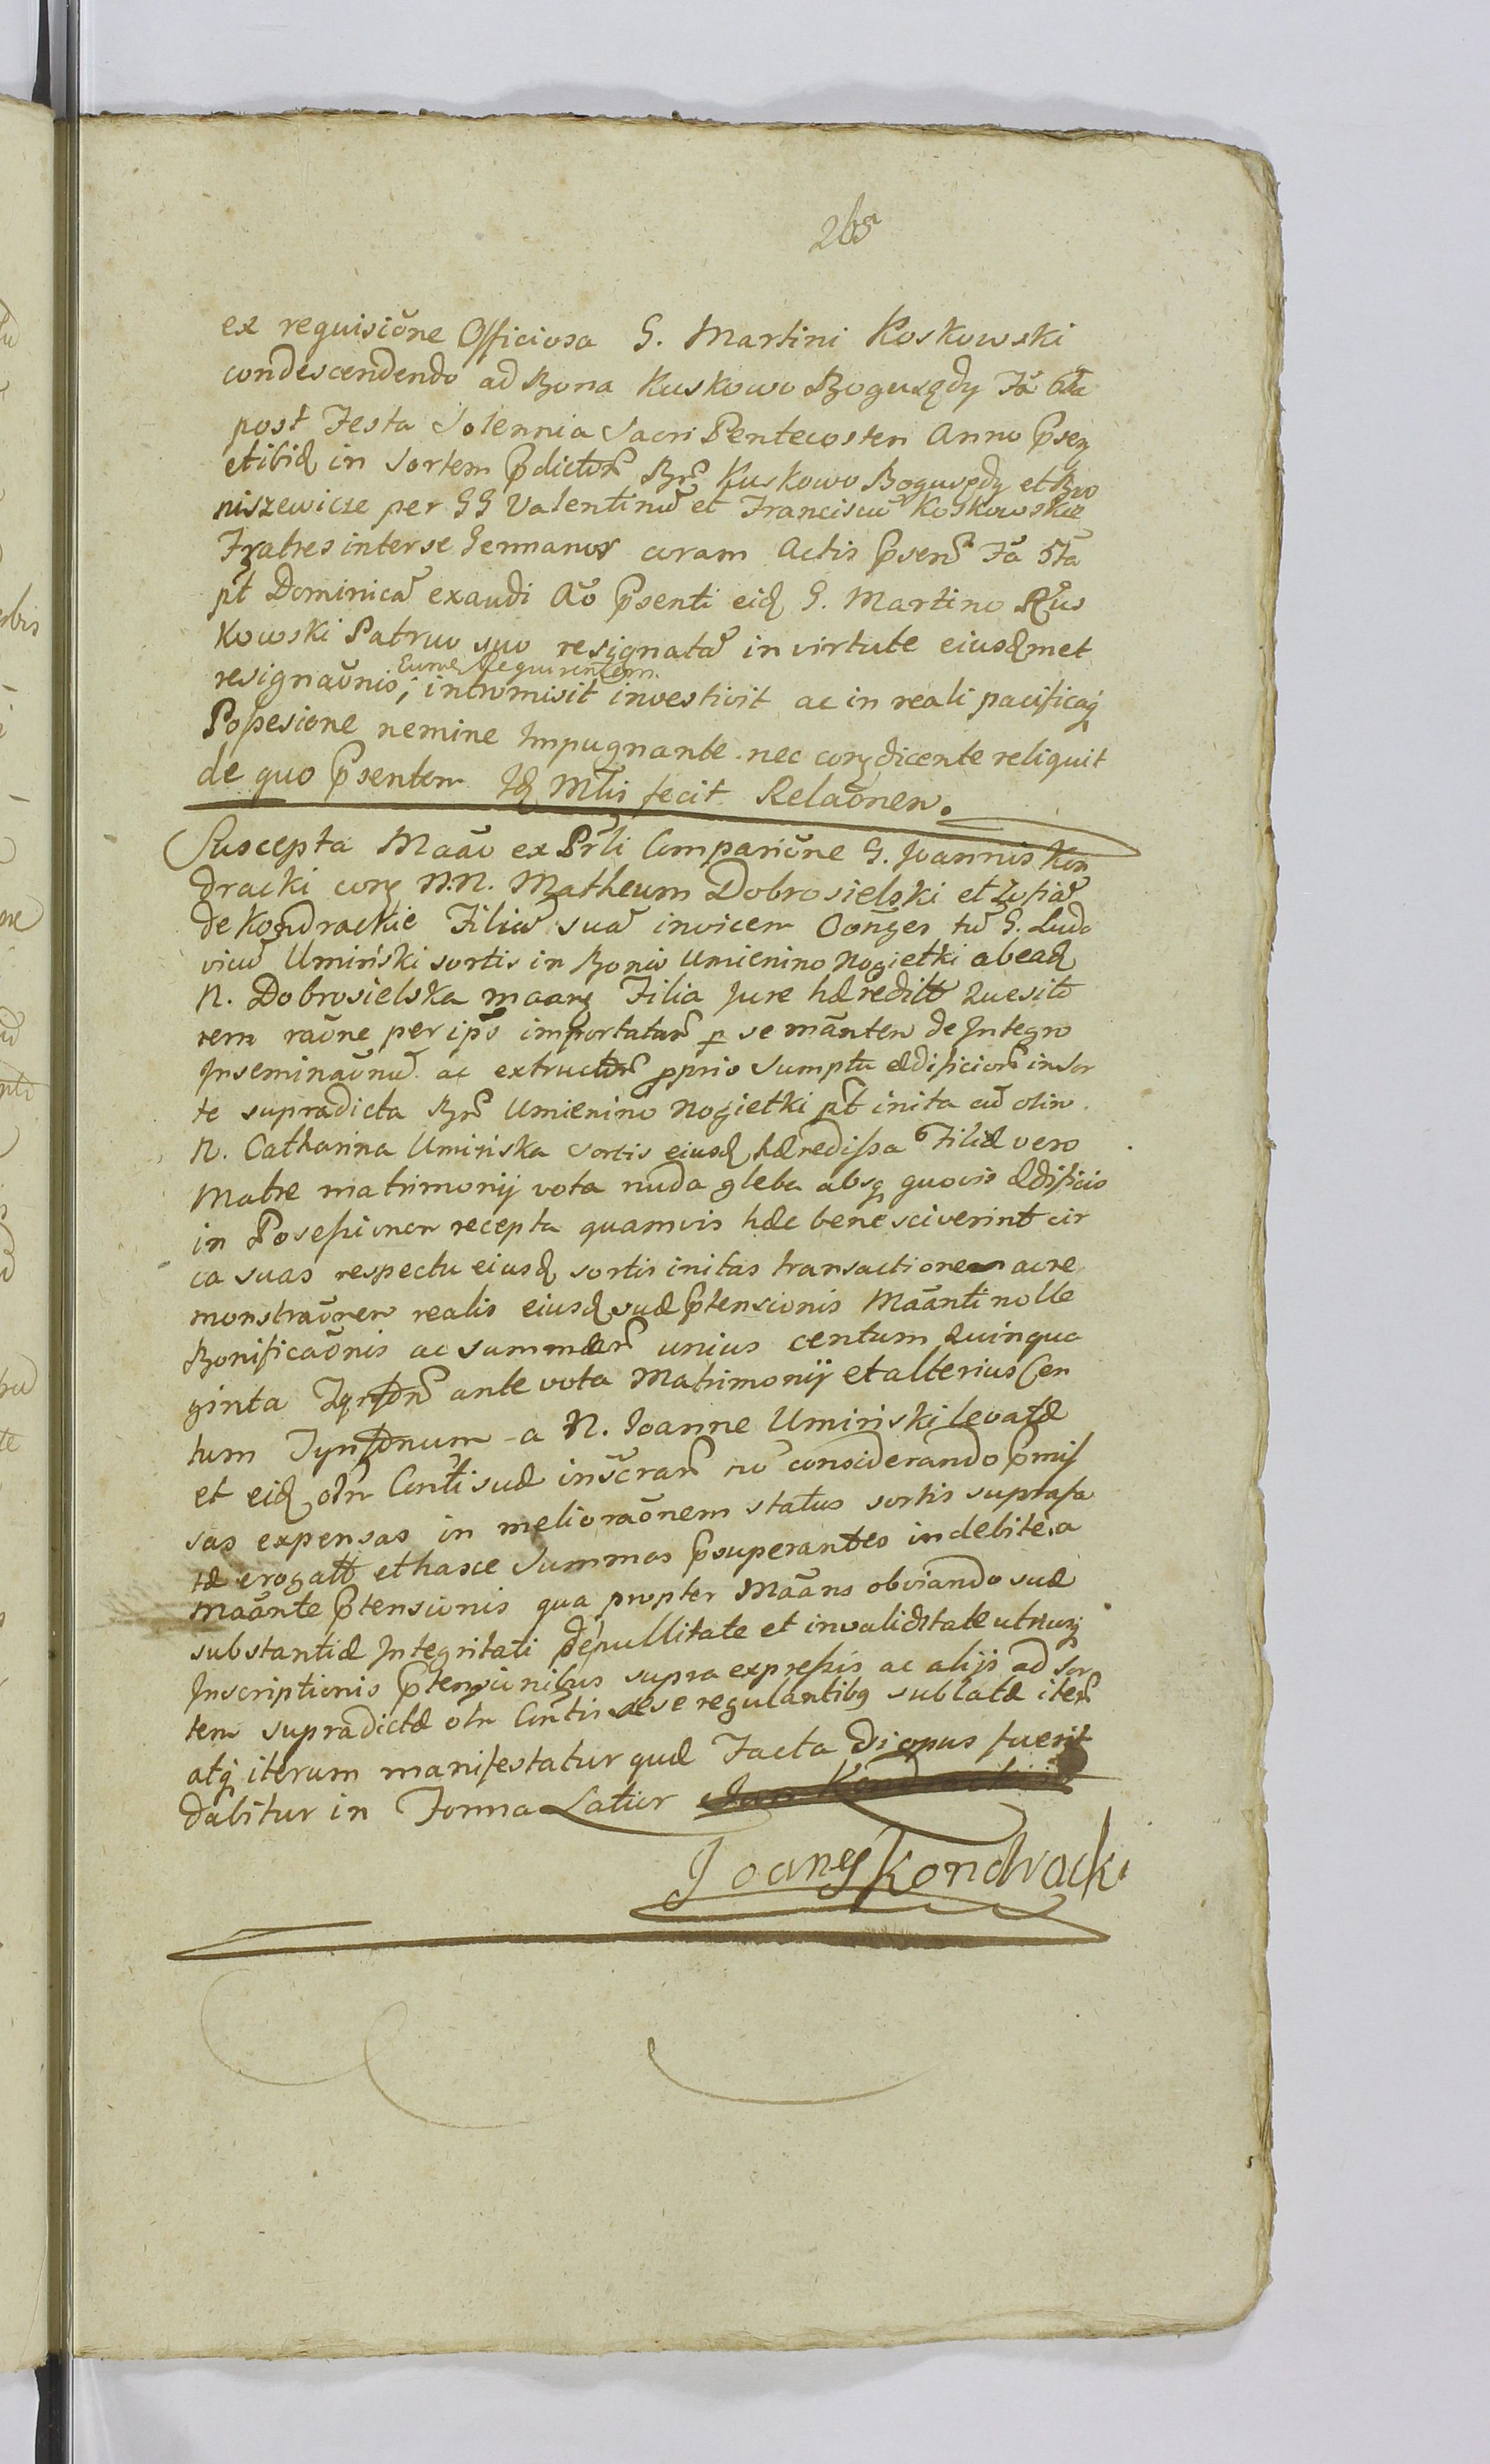 265
ex requisiõne Officiosa G. Martini Koskowski
condescendendo ad Bona Kuskowo Bogusędy Fã 6ta
post Festa Solennia Sacri Pentecosten Anno p̃seq
et ibiđ in Sortem p̃dictor̃ Br̃ Kuskowo Bogusędy et Bro
niszewicze per GG Valentinũ et Franciscũ Koskowskie
Fratres inter se Germanos coram Actis p̃sen̄ Fã 5tã
pt̃ Dominicã exaudi Aõ p̃senti eiđ G. Martino Kus
kowski Patruo suo resignatã in virtute eiusđmet
Eunđ Requirentem
resignaõnis; intromisit investivit ac in reali pacificaq́
Poßesione nemine Impugnante nec con dicente reliquit
de quo p̃sentem Iđ Mlis fecit Relaõnem.
Suscepta Maão ex Prli Compariõne G. Joannis Kon
dracki con N.N. Matheum Dobrosielski et Zofiã
de Kondrackie Filiã suã invicem Cõnges tũ G. Ludo
vicũ Umiński sortis in Bonis Umienino Nogietki ab eađ
N. Dobrosielska maan Filia Jure hæredítt Quesito
rem raõne per ip̃s importatar̃ p se mãnten de Integro
Inseminaõnũ ac extructor̃ pprio Sumptu ædificior̃ in Sor
te supradicta Br̃ Umienino Nogietki pt̃ inita cũ olim
N. Catharina Umińska Sortis eiusđ hæredissa Filiæ vero
Matre matrimonij vota nuda gleba absq́ quovis ædificio
in Poseßionem recepta quamvis hæc bene sciverint cir
ca suas respectu eiusđ sortis initas transactionem ac re
monstraõnem realis eiusđ suæ p̃tensionis Maãnti nolle
Bonificaõnis ac Summar̃ unius centum Quinqua
ginta ante vota Matrimonij et alterius Cen
tum Tynfonum a N. Joanne Umiński levatæ
et eiđ õtn Conti suæ inscrar̃ nõ considerando p̃mis
sas expensas in melioraõnem status sortis suprafa
tæ erogatt et hasce Summas p̃superantes indebite a
Maãnte p̃tensionis qua propter Maãns obviando suæ
substantiæ Integritati de nullitate et invaliditate utriusq́
Inscriptionis p̃tensionibus supra expreßis ac alijs ad Sor
tem supradictæ õtn Contis sese regulantibq sublatæ iter̃
atq́ iterum manifestatur quæ Facta Di opus fuerit
dabitur in Forma Latior
Joanes Kondracki